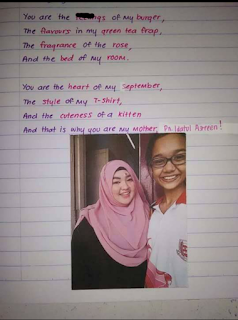 You are the of my burger,
The flavours in my green tea frap,
The fragrance of the rose,
And the bed of my room.
You are the heart of my September,
The style of my T-shirt,
And the cuteness of a kitten
And that is why you are my mother,